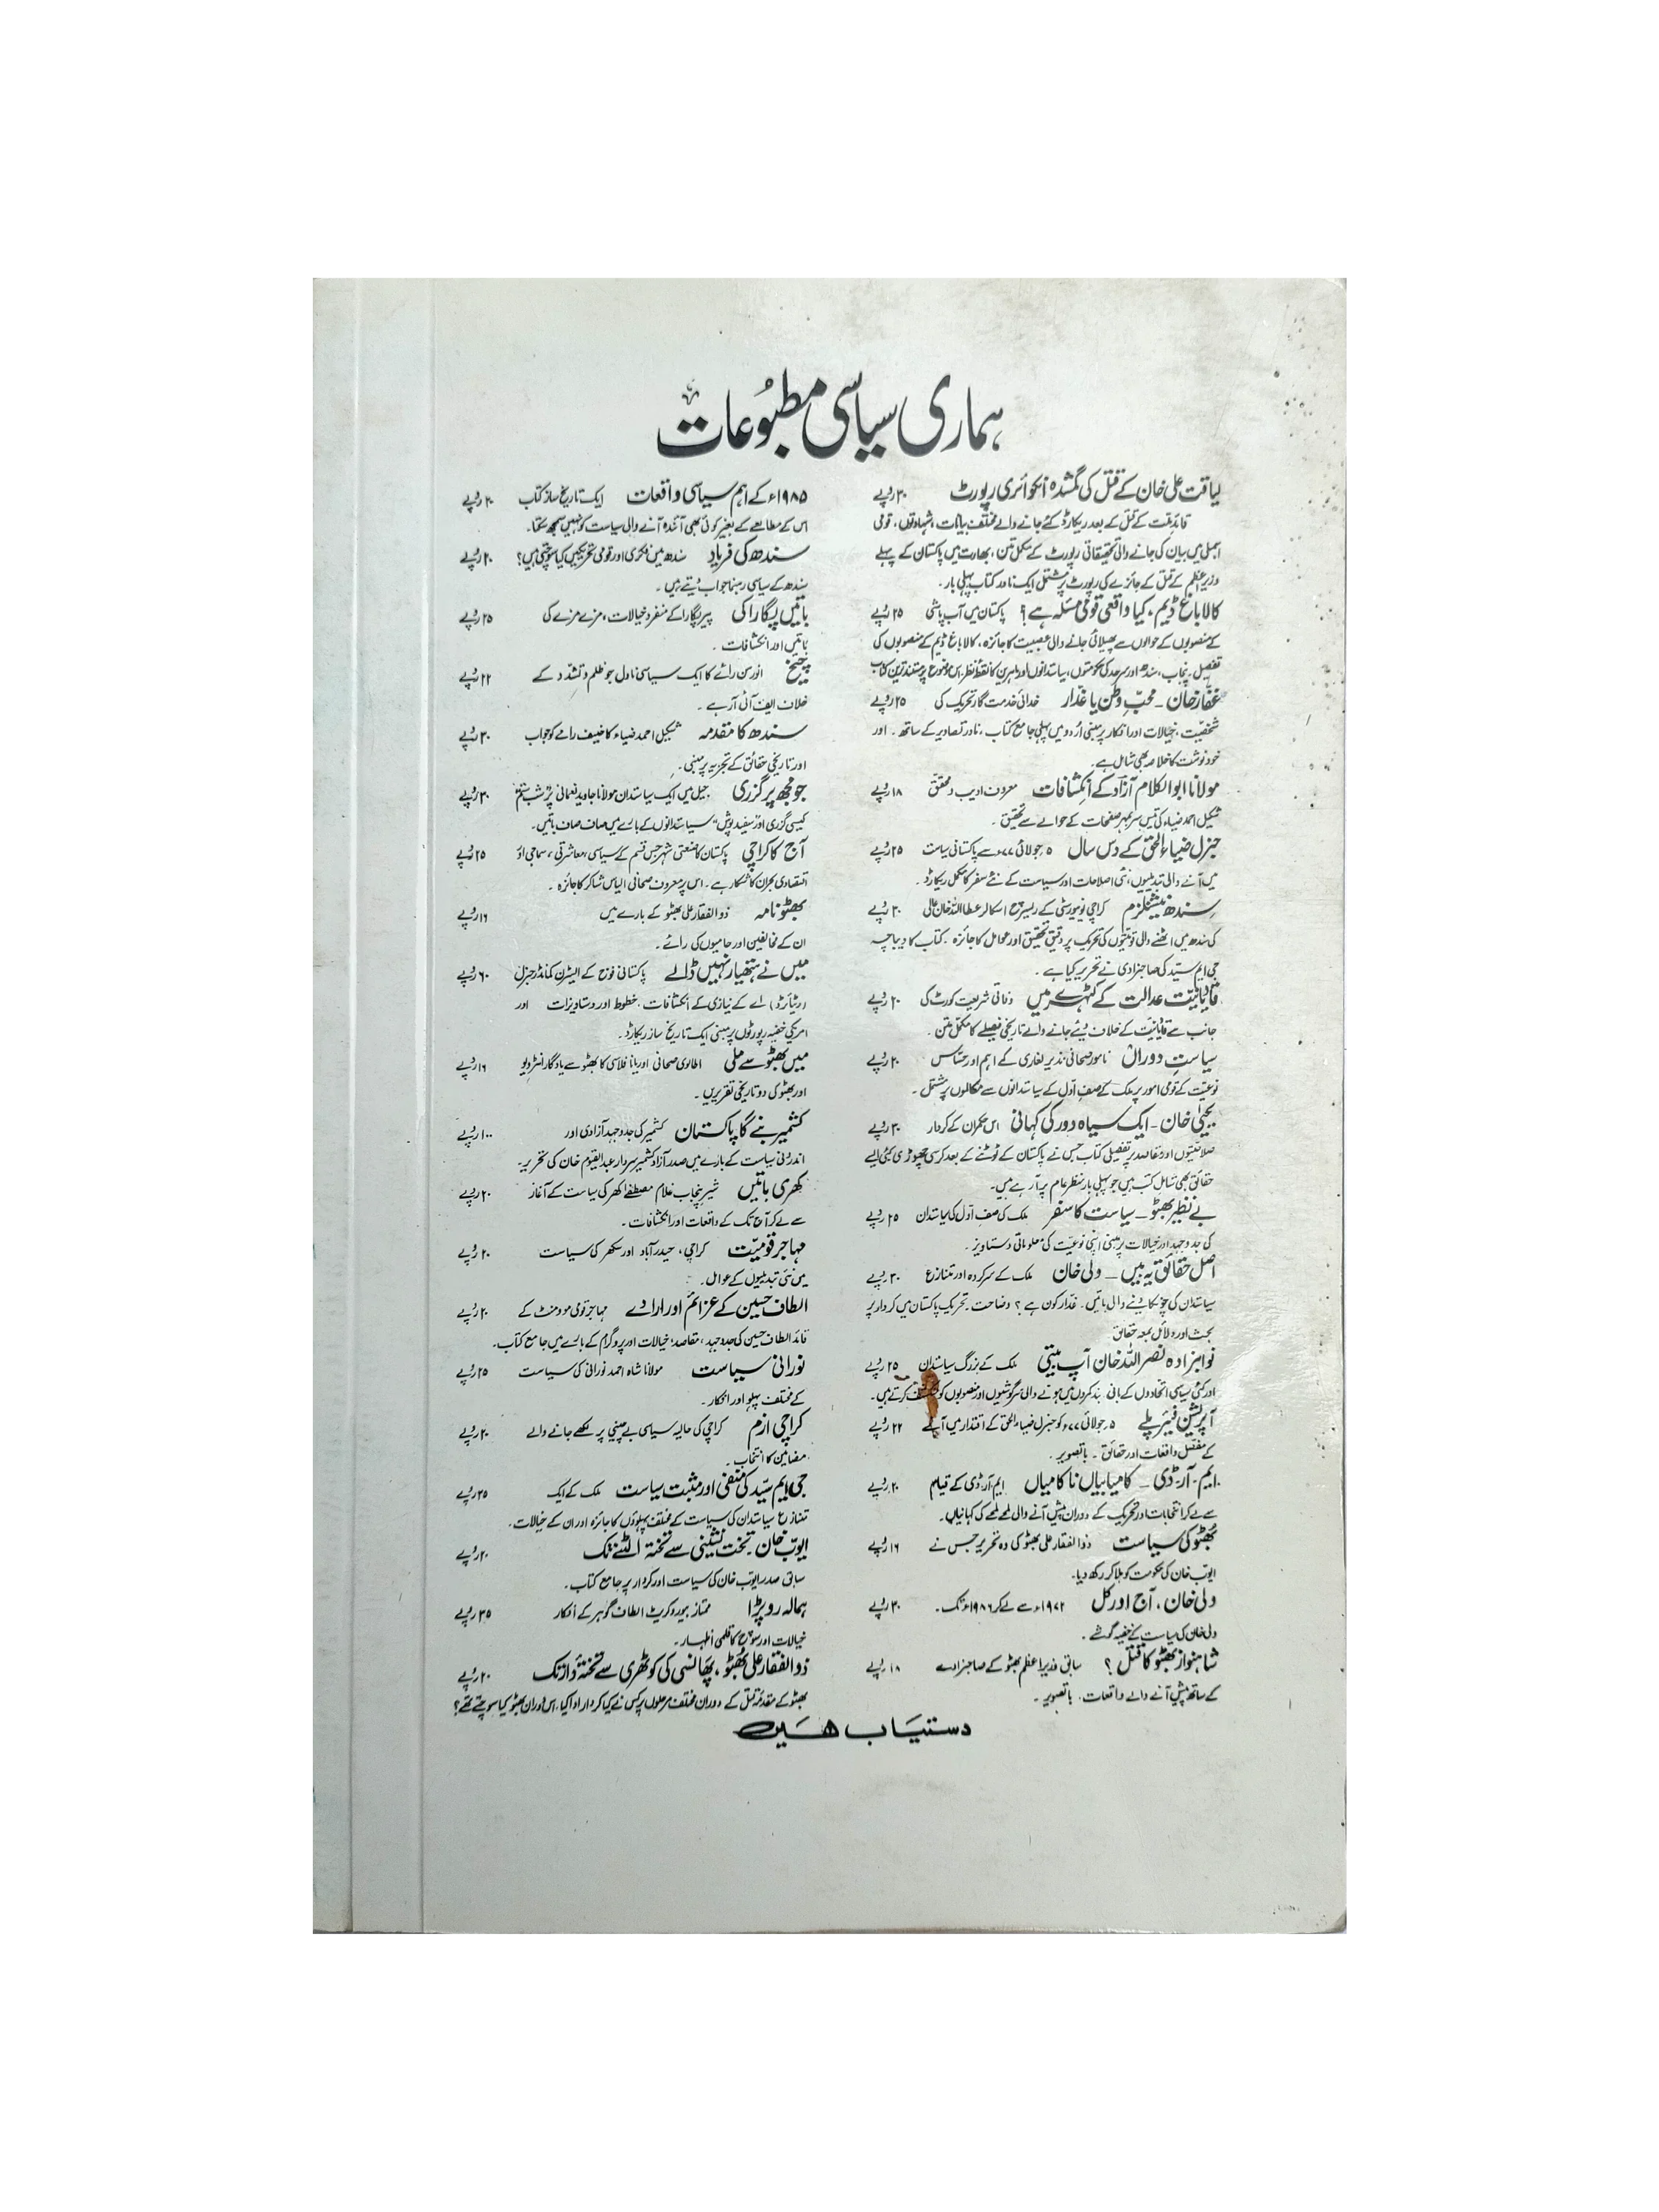 ہماری سیاسی مطبوعات
لیاقت علی خان کے قتل کی گمشدہ انکوائری رپورٹ ۳۰ روپے
قائد ملت کے قتل کے بعد ریکارڈ کئے جانے والے مختلف بیانات، شہادتوں، قومی
اسمبلی میں بیان کی جانے والی تحقیقاتی رپورٹ کے مکمل متن، بھارت میں پاکستان کے پہلے
وزیر اعظم کے قتل کے جائزے کی رپورٹ پر مشتمل ایک نادر کتاب پہلی بار۔
کالا باغ ڈیم، کیا واقعی قومی مسئلہ ہے؟ پاکستان میں آب پاشی ۲۵ روپے
کے منصوبوں کے حوالوں سے پھیلائی جانے والی عصبیت کا جائزہ، کالا باغ ڈیم کے منصوبوں کی
تفصیل، پنجاب، سندھ اور سرحد کی حکومتوں، سیاستدانوں اور ماہرین کا نقطۂ نظر، اس موضوع پر مستند ترین کتاب
غفار خان ۔ محبِ وطن یا غدار خدائی خدمت گار تحریک کی ۲۵ روپے
شخصیت، خیالات اور افکار پر مبنی اُردو میں پہلی جامع کتاب، نادر تصاویر کے ساتھ۔ اور
خود نوشت کا خلاصہ بھی شامل ہے۔
مولانا ابوالکلام آزاد کے انکشافات معروف ادیب و محقق ۱۸ روپے
شکیل احمد ضیاء کی تیس سر بمہر صفحات کے حوالے سے تحقیق۔
جنرل ضیاء الحق کے دس سال ۵ جولائی ۷۷ء سے پاکستانی سیاست ۲۵ روپے
میں آنے والی تبدیلیوں، نئی اصلاحات اور سیاست کے نئے سفر کا مکمل ریکارڈ۔
سندھ نیشنلزم کراچی یونیورسٹی کے ریسرچ اسکالر عطا اللہ خان عالی ۳۰ روپے
کی سندھ میں اٹھنے والی قومیتوں کی تحریک پر دقیق تحقیق اور عوامل کا جائزہ۔ کتاب کا دیباچہ
جی ایم سیّد کی صاحبزادی نے تحریر کیا ہے۔
قادیانیت عدالت کے کٹہرے میں وفاقی شریعت کورٹ کی ۲۰ روپے
جانب سے قادیانیت کے خلاف دیئے جانے والے تاریخی فیصلے کا مکمل متن۔
سیاستِ دوراں نامور صحافی نذیر لغاری کے اہم اور حساس ۲۰ روپے
نوعیت کے قومی امور پر ملک کے صفِ اوّل کے سیاستدانوں سے مکالموں پر مشتمل۔
یحییٰ خان ۔ ایک سیاہ دور کی کہانی اس حکمران کے کردار ۳۰ روپے
صلاحیتوں اور مقاصد پر تفصیلی کتاب جس نے پاکستان کے ٹوٹنے کے بعد کرسی چھوڑی کئی ایسے
حقائق بھی شامل کتب ہیں جو پہلی بار منظر عام پر آ رہے ہیں۔
بے نظیر بھٹو ۔ سیاست کا سفر ملک کی صف اوّل کی سیاستدان ۲۵ روپے
کی جدوجہد اور خیالات پر مبنی اپنی نوعیت کی معلوماتی دستاویز۔
اصل حقائق یہ ہیں ۔ ولی خان ملک کے سرکردہ اور متنازع ۳۰ روپے
سیاستدان کی چونکا دینے والی باتیں۔ غدار کون ہے؟ وضاحت۔ تحریک پاکستان میں کردار پر
بحث اور دلائل بمعہ حقائق
نوابزادہ نصر اللہ خان آپ بیتی ملک کے بزرگ سیاستدان ۲۵ روپے
اور کئی سیاسی اتحادوں کے بانی بند کمروں میں ہونے والی سرگوشیوں اور منصوبوں کو کرتے ہیں۔
آپریشن فیئر پلے ۵ جولائی ۷۷ء کو جنرل ضیاء الحق کے اقتدار میں آنے ۲۲ روپے
کے مفصل واقعات اور حقائق۔ باتصویر۔
ایم۔ آر۔ ڈی ۔ کامیابیاں ناکامیاں ایم۔ آر۔ ڈی کے قیام ۲۰ روپے
سے لے کر انتخابات اور تحریک کے دوران پیش آنے والی لمحے لمحے کی کہانیاں۔
بھٹو کی سیاست ذوالفقار علی بھٹو کی وہ تحریر جس نے ۱۶ روپے
ایوب خان کی حکومت کو ہلا کر رکھ دیا۔
ولی خان، آج اور کل ۱۹۷۲ء سے لے کر ۱۹۸۶ء تک۔ ۳۰ روپے
ولی خان کی سیاست کے خفیہ گوشے۔
شاہنواز بھٹو کا قتل؟ سابق وزیر اعظم بھٹو کے صاحبزادے ۱۸ روپے
کے ساتھ پیش آنے والے واقعات۔ باتصویر۔
۱۹۸۵ء کے اہم سیاسی واقعات ایک تاریخ ساز کتاب ۲۰ روپے
اس کے مطالعے کے بغیر کوئی بھی آئندہ آنے والی سیاست کو نہیں سمجھ سکتا۔
سندھ کی فریاد سندھ میں فکری اور قومی تحریکیں کیا سوچتی ہیں؟ ۲۰ روپے
سندھ کے سیاسی رہنما جواب دیتے ہیں۔
باتیں پگارا کی پیر پگارا کے منفرد خیالات، مزے مزے کی ۲۵ روپے
باتیں اور انکشافات۔
چیخ انور سن رائے کا ایک سیاسی ناول جو ظلم و تشدد کے ۲۲ روپے
خلاف ایف آئی آر ہے۔
سندھ کا مقدمہ شکیل احمد ضیاء کا حنیف رامے کو جواب ۳۰ روپے
اور تاریخی حقائق کے تجزیہ پر مبنی۔
جو مجھ پر گزری جیل میں ایک سیاستدان مولانا جاوید نعمانی پر شب ستم ۳۰ روپے
کیسی گزری اور "سفید پوش" سیاستدانوں کے بارے میں صاف صاف باتیں۔
آج کا کراچی پاکستان کا صنعتی شہر جس قسم کے سیاسی، معاشرتی، سماجی اور ۲۵ روپے
اقتصادی بحران کا شکار ہے۔ اس پر معروف صحافی الیاس شاکر کا جائزہ۔
بھٹو نامہ ذوالفقار علی بھٹو کے بارے میں ۱۶ روپے
ان کے مخالفین اور حامیوں کی رائے۔
میں نے ہتھیار نہیں ڈالے پاکستانی فوج کے ایسٹرن کمانڈر جنرل ۶۰ روپے
(ریٹائرڈ) اے کے نیازی کے انکشافات، خطوط اور دستاویزات اور
امریکی خفیہ رپورٹوں پر مبنی ایک تاریخ ساز ریکارڈ۔
میں بھٹو سے ملی اطالوی صحافی اوریانا فلاسی کا بھٹو سے یادگار انٹرویو ۱۶ روپے
اور بھٹو کی دو تاریخی تقریریں۔
کشمیر بنے گا پاکستان کشمیر کی جدوجہد آزادی اور ۱۰۰ روپے
اندرونی سیاست کے بارے میں صدر آزاد کشمیر سردار عبدالقیوم خان کی تحریر۔
کھری باتیں شیر پنجاب غلام مصطفےٰ کھر کی سیاست کے آغاز ۲۰ روپے
سے لے کر آج تک کے واقعات اور انکشافات۔
مہاجر قومیت کراچی، حیدرآباد اور سکھر کی سیاست ۲۰ روپے
میں نئی تبدیلیوں کے عوامل۔
الطاف حسین کے عزائم اور ارادے مہاجر قومی موومنٹ کے ۲۰ روپے
قائد الطاف حسین کی جدوجہد، مقاصد، خیالات اور پروگرام کے بارے میں جامع کتاب۔
نورانی سیاست مولانا شاہ احمد نورانی کی سیاست ۲۵ روپے
کے مختلف پہلو اور افکار۔
کراچی ازم کراچی کی حالیہ سیاسی بے چینی پر لکھے جانے والے ۲۰ روپے
مضامین کا انتخاب۔
جی ایم سیّد کی منفی اور مثبت سیاست ملک کے ایک ۲۵ روپے
متنازع سیاستدان کی سیاست کے مختلف پہلوؤں کا جائزہ اور ان کے خیالات۔
ایوب خان۔ تخت نشینی سے تختہ الٹنے تک ۲۰ روپے
سابق صدر ایوب خان کی سیاست اور کردار پر جامع کتاب۔
ہمالہ رو پڑا ممتاز بیوروکریٹ الطاف گوہر کے افکار ۳۵ روپے
خیالات اور سوچ کا قلمی اظہار۔
ذوالفقار علی بھٹو، پھانسی کی کوٹھری سے تختۂ دار تک ۲۰ روپے
بھٹو کے مقدمۂ قتل کے دوران مختلف مرحلوں پر کس نے کیا کردار ادا کیا، اس دوران بھٹو کیا سوچتے تھے؟
دستیاب ہیں